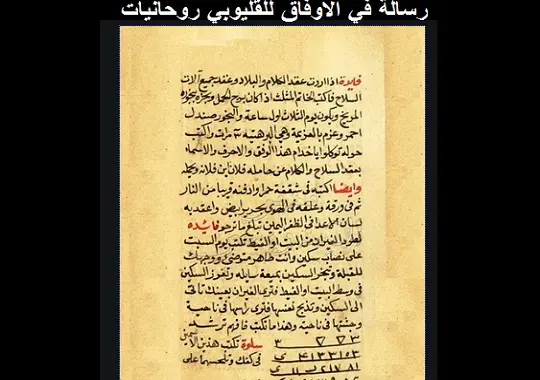 رسالة في الاوفاق للقليوبي روحانيات
فايدة اذا اردت عقد الكلام والبلاد وعقد جميع آلات
السلاح فاكتب الخاتم المثلث اذا كان برج الحمل وبخره ببخور
المريخ ويكون يوم الثلاث اول ساعة والبخور صندل
احمر وعزم بالعزيمة وهي البرهتيه مرات واكتب
حوله توكلوا ياخدام هذا الوفق والاحرف والاسماء
بعقد السلاح والكلام عن حامله فلان ابن فلانة
وايضا اكتبه في شقفة حمرا وادفنه قريبا من النار
ثم في ورقة وعلقه في بحرير ابيض واعقد به
لسان الاعدا في الظفر اليمين تبلغ ما ترجو فائده
لطرد الفيران من البيت او الغيط تكتب يوم السبت
على نصاب سكين وانت طاهر متوضي ووجهك
للقبلة وتبخر السكين بميعة سايله وتغرز السكين
في وسط البيت او الغيط فترى الفيران بعينك تاتي
الى السكين وتذبح نفسها فترى راسها في ناحية
وجثتها في ناحية وهذا ما تكتب فافهم ترشد
سلوة تكتب هذين الاسمين
في كفك وتلحسهما على